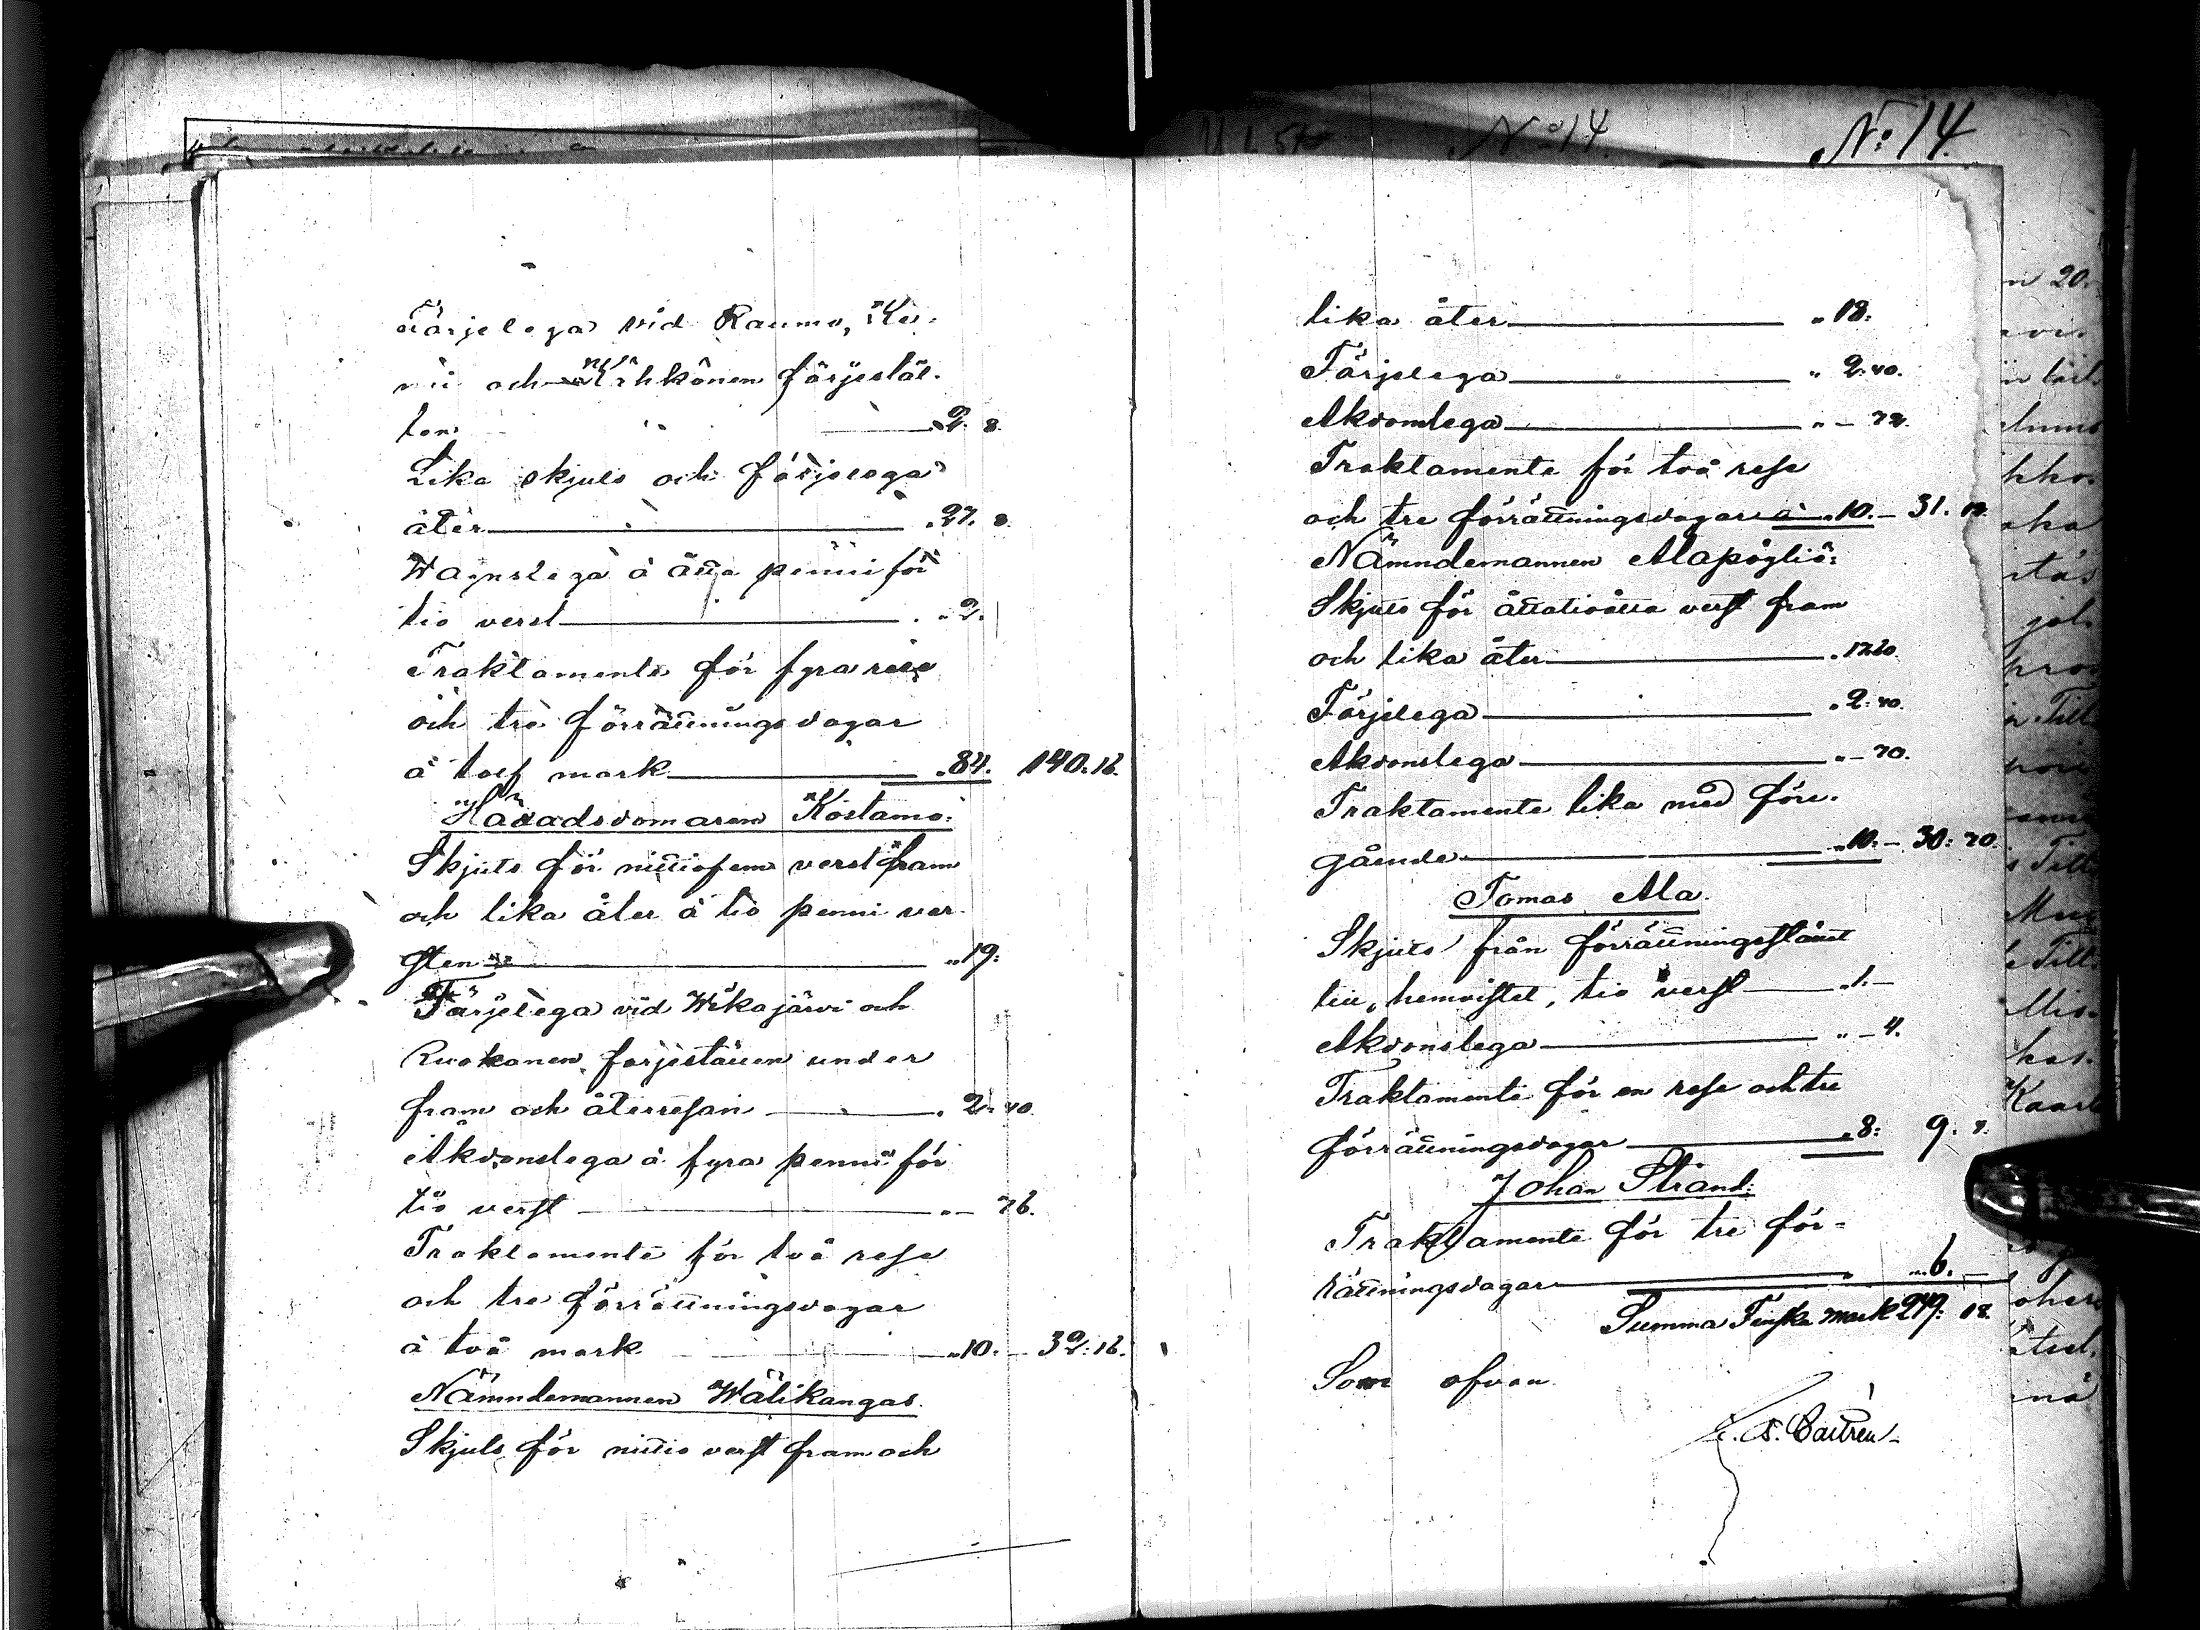 Färjelega vid Raumo, Ke-
mi och Nähkönen färjestäl-
len " 2. 8.
Lika skjuts och färjelega
åter " 27. 8.
Wagnslega á åtta penni för
tio verst " 2.
Traktamente för fyra rese
och tre förrättningsdagar
á tolf mark " 84. 140. 16.
Häradsdomaren Kostamo:
Skjuts för nittiofem verst fram
och lika åter á tio penni ver-
sten " 19:
Färjelega vid Wikajärvi och
Ruokanen färjeställen under
fram och återresan " 2. 40.
Åkdonslega á fyra penni för
tio verst " – 76.
Traktamente för två rese
och tre förrättningsdagar
á två mark " 10. – 32. 16.
Nämndemannen Wälikangas.
Skjuts för nittio verst fram och
No: 14
No: 14.
lika åter " 18:
Färjelega " 2: 40.
Åkdonslega " – 72.
Traktamente för två rese
och tre förrättningsdagar á " 10. – 31. 12.
Nämndemannen Alapögliö:
Skjuts för åttatioåtta verst fram
och lika åter " 17.60.
Färjelega " 2: 40.
Åkdonslega " – 70.
Traktamente lika med före-
gående " 10. – 30: 70.
Tomas Ala.
Skjuts från förrättningsstället
till hemvistet, tio verst " 1. –
Åkdonslega " – 4.
Traktamente för en rese och tre
förrättningsdagar " 8: 9. 4.
Johan Strand:
Traktamente för tre för-
rättningsdagar " 6. –
Summa Finska mark 249: 18.
Som ofvan
Castrén